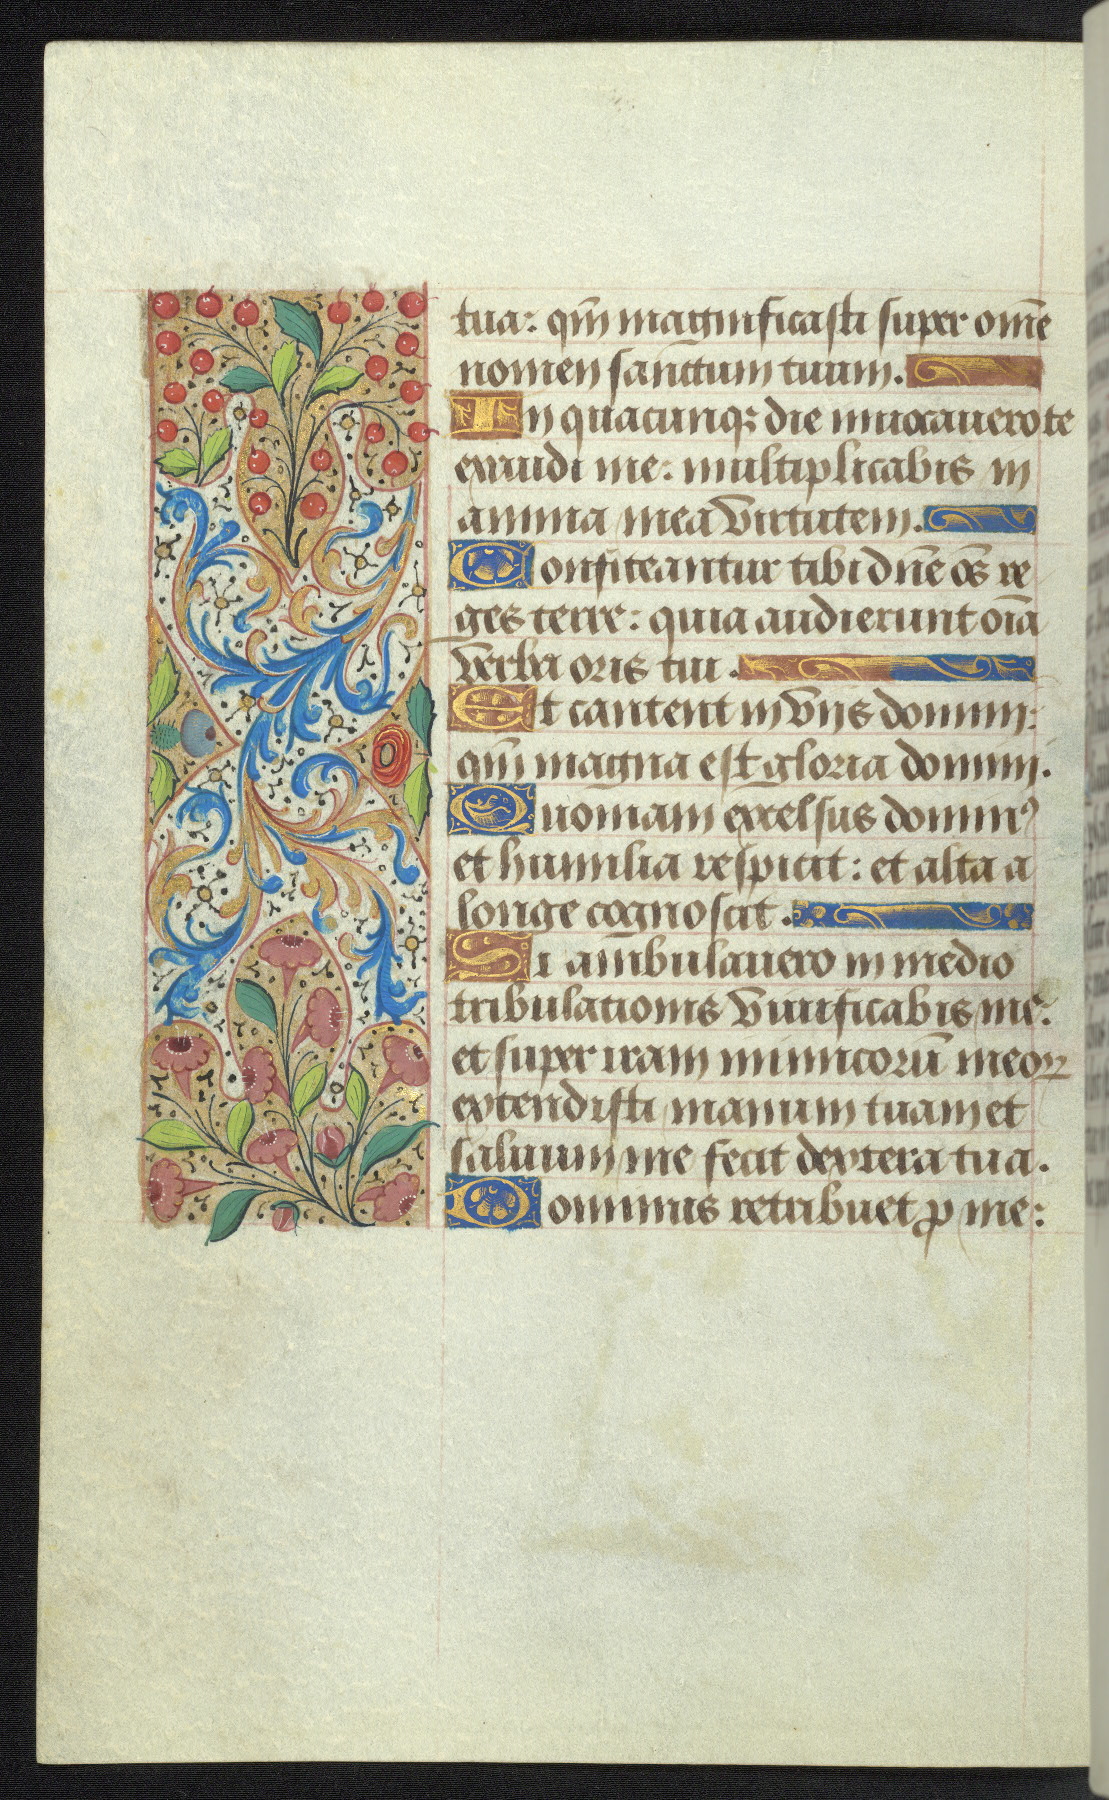 tua: qm̄ magnificasti super om̄e
nomen sanctum tuum.
In quacunqꝫ die inuocauero te
exaudi me: multiplicabis in
anima mea virtutem.
Confiteantur tibi dn̄e om̄s re
ges terre: quia audierunt oīa
verba oris tui.
Et cantent in vijs domini:
qm̄ magna est gloria domini.
Quoniam excelsus dominꝰ
et humilia respicit: et alta a
longe cognoscit.
Si ambulauero in medio
tribulationis viuificabis me:
et super iram inimicorū meoꝝ
extendisti manum tuam et
saluum me fecit dextera tua.
Dominus retribuet ꝓ me: